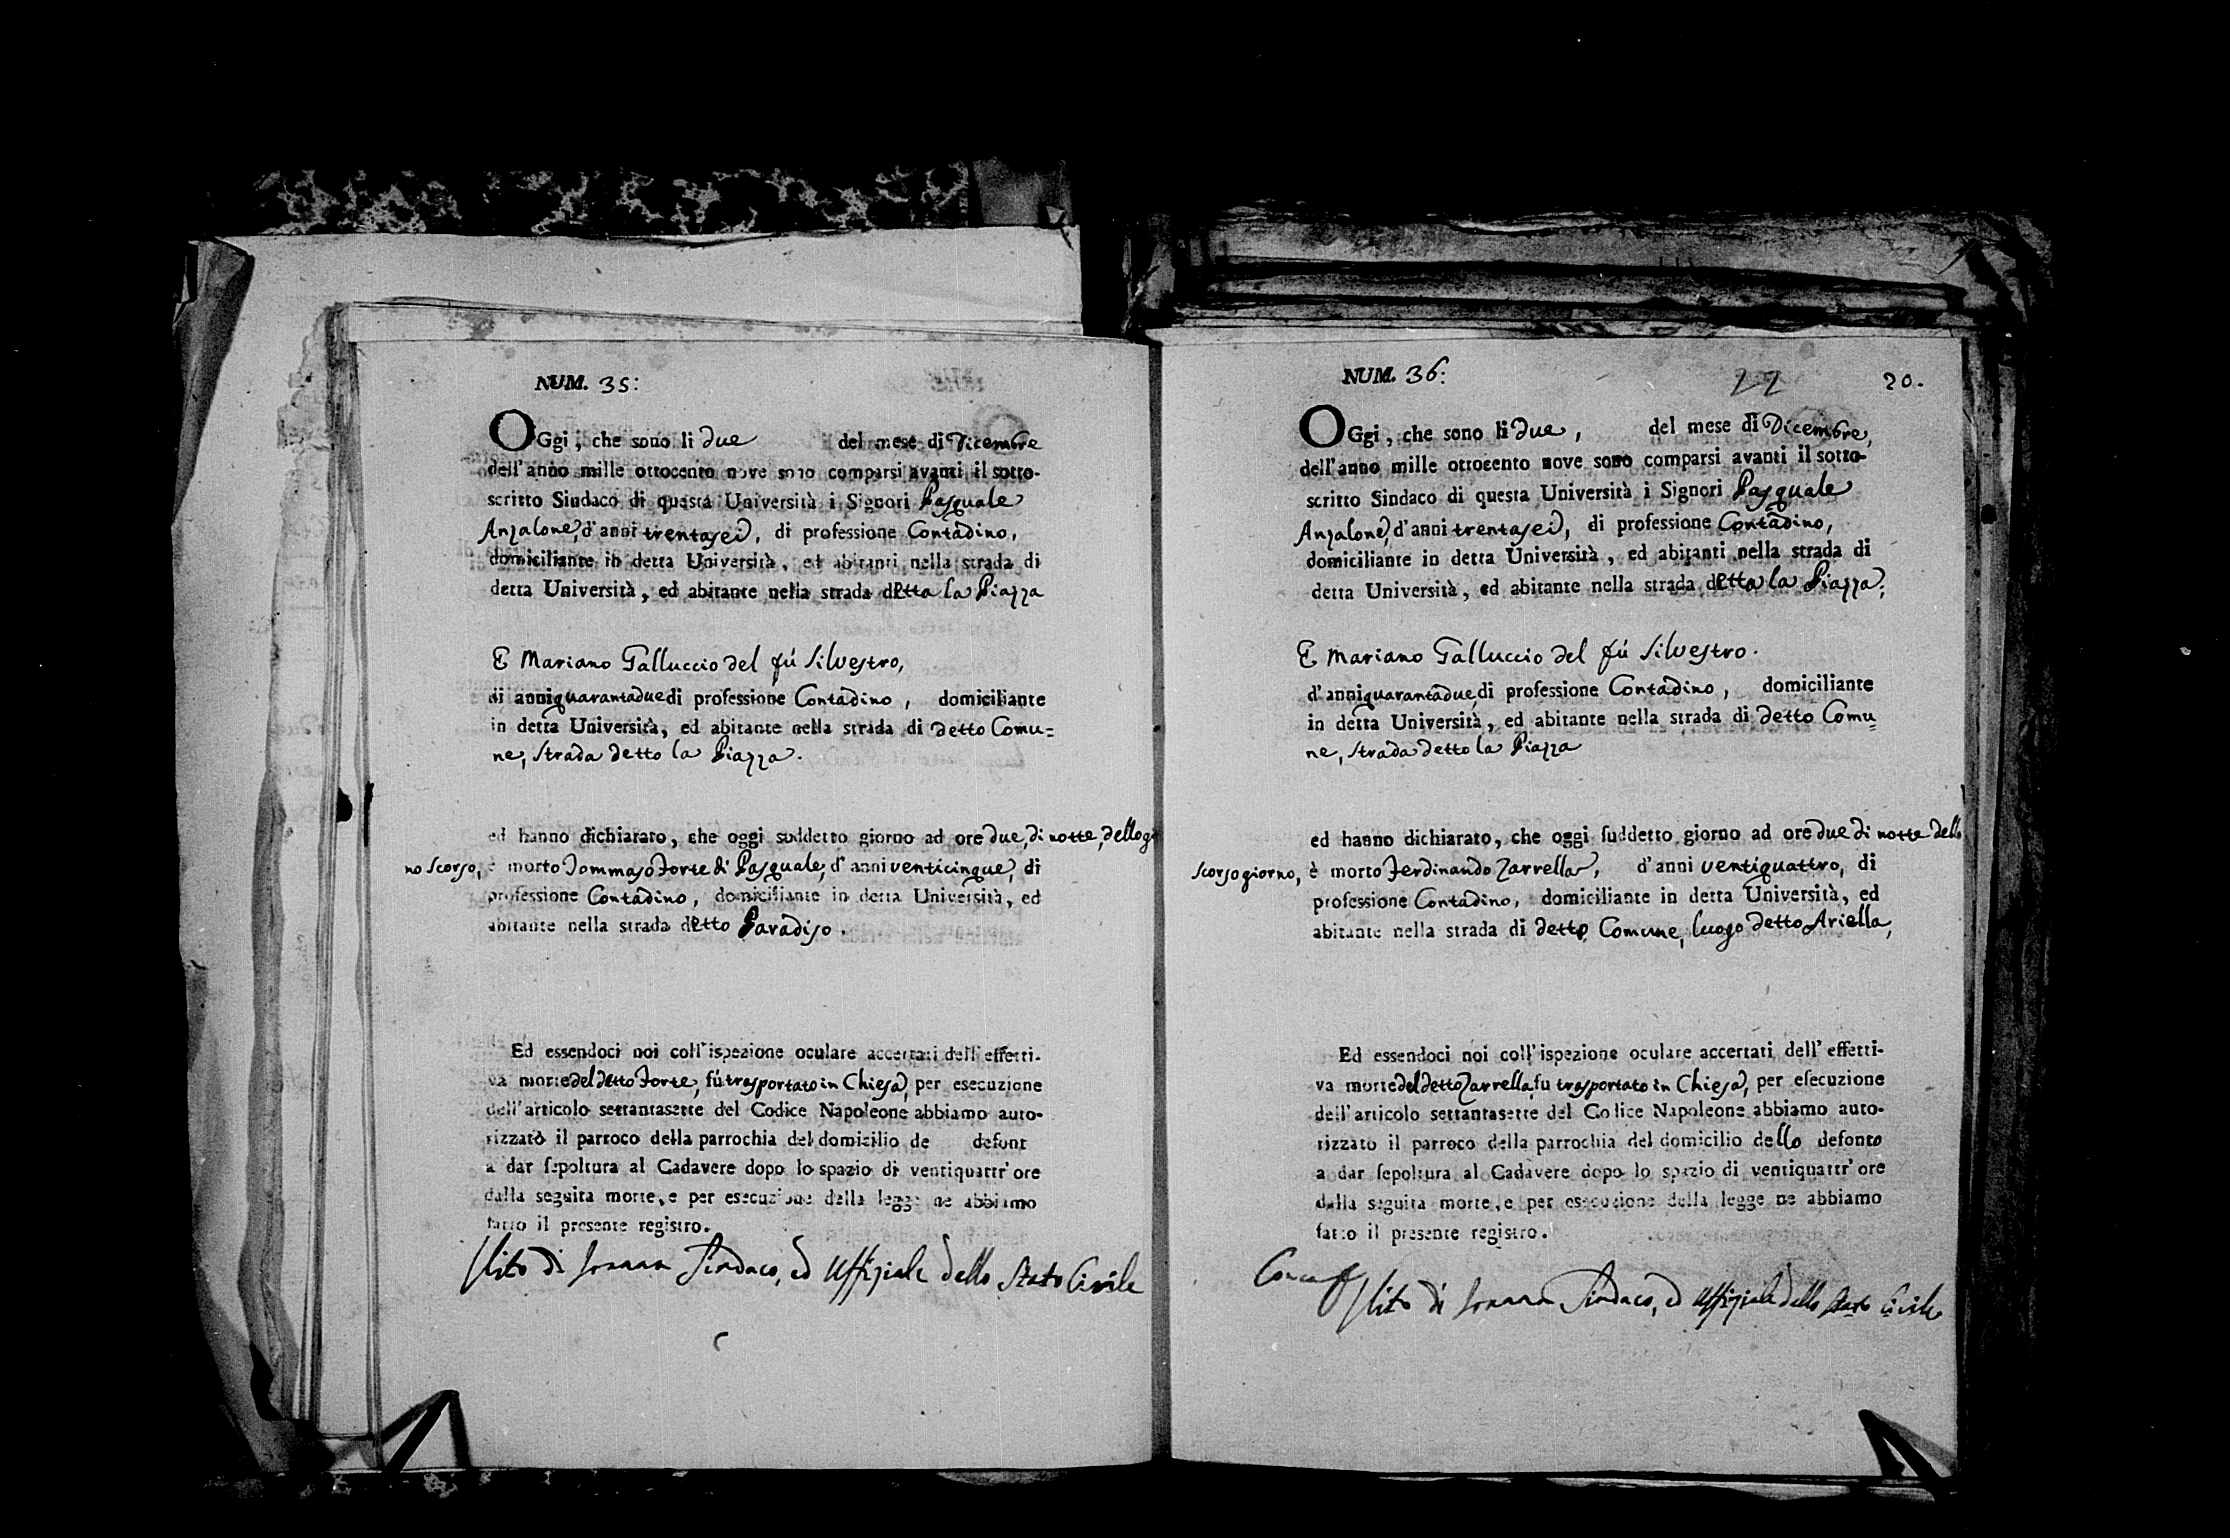 NUM. 35:
OGgi, che sono li due del mese di Dicembre
dell'anno mille ottocento nove sono comparsi avanti il sotto-
scritto Sindaco di questa Università i Signori Pasquale
Anzalone, d'anni trentasei, di professione Contadino,
domiciliante in detta Università, ed abitanti nella strada di
detta Università, ed abitante nella strada detta la Piazza
E Mariano Galluccio del fú Silvestro,
di anni quarantadue di professione Contadino, domiciliante
in detta Università, ed abitante nella strada di detto Comu=
ne, strada detto la Piazza.
ed hanno dichiarato, che oggi suddetto giorno ad ore due, di notte, dello gi
no scorso, è morto Tommaso Forte di Pasquale, d'anni venticinque, di
professione Contadino, domiciliante in detta Università, ed
abitante nella strada detto Paradiso.
Ed essendoci noi coll'ispezione oculare accertati dell'effetti-
va morte del detto Forte, fú trasportato in Chiesa, per esecuzione
dell'articolo settantasette del Codice Napoleone abbiamo auto-
rizzatò il parroco della parrochia del domicilio de defont
a dar sepoltura al Cadavere dopo lo spazio di ventiquattr'ore
dalla seguita morte, e per esecuzione della legge ne abbiamo
fatto il presente registro.
Vito di Sindaco, ed Uffiziale dello Stato Civile
NUM. 36:
22
20.
OGgi, che sono li due, del mese di Dicembre,
dell'anno mille ottocento nove sono comparsi avanti il sotto-
scritto Sindaco di questa Università i Signori Pasquale
Anzalone, d'anni trentasei, di professione Contadino,
domiciliante in detta Università, ed abitanti nella strada di
detta Università, ed abitante nella strada detta la Piazza;
E Mariano Galluccio del fú Silvestro.
d'anni quarantadue, di professione Contadino, domiciliante
in detta Università, ed abitante nella strada di detto Comu=
ne, strada detto la Piazza
ed hanno dichiarato, che oggi suddetto giorno ad ore due di notte dello
scorso giorno, è morto Ferdinando Zarrella, d'anni ventiquattro, di
professione Contadino, domiciliante in detta Università, ed
abitante nella strada di detto Comune, luogo detto Ariella,
Ed essendoci noi coll'ispezione oculare accertati dell'effetti-
va morte del detto Zarrella, fu trasportato in Chiesa, per esecuzione
dell'articolo settantasette del Codice Napoleone abbiamo auto-
rizzato il parroco della parrochia del domicilio dello defonto
a dar sepoltura al Cadavere dopo lo spazio di ventiquattr'ore
dalla seguita morte, e per esecuzione della legge ne abbiamo
fatto il presente registro.
Vito di Sindaco, ed Uffiziale dello Stato Civile